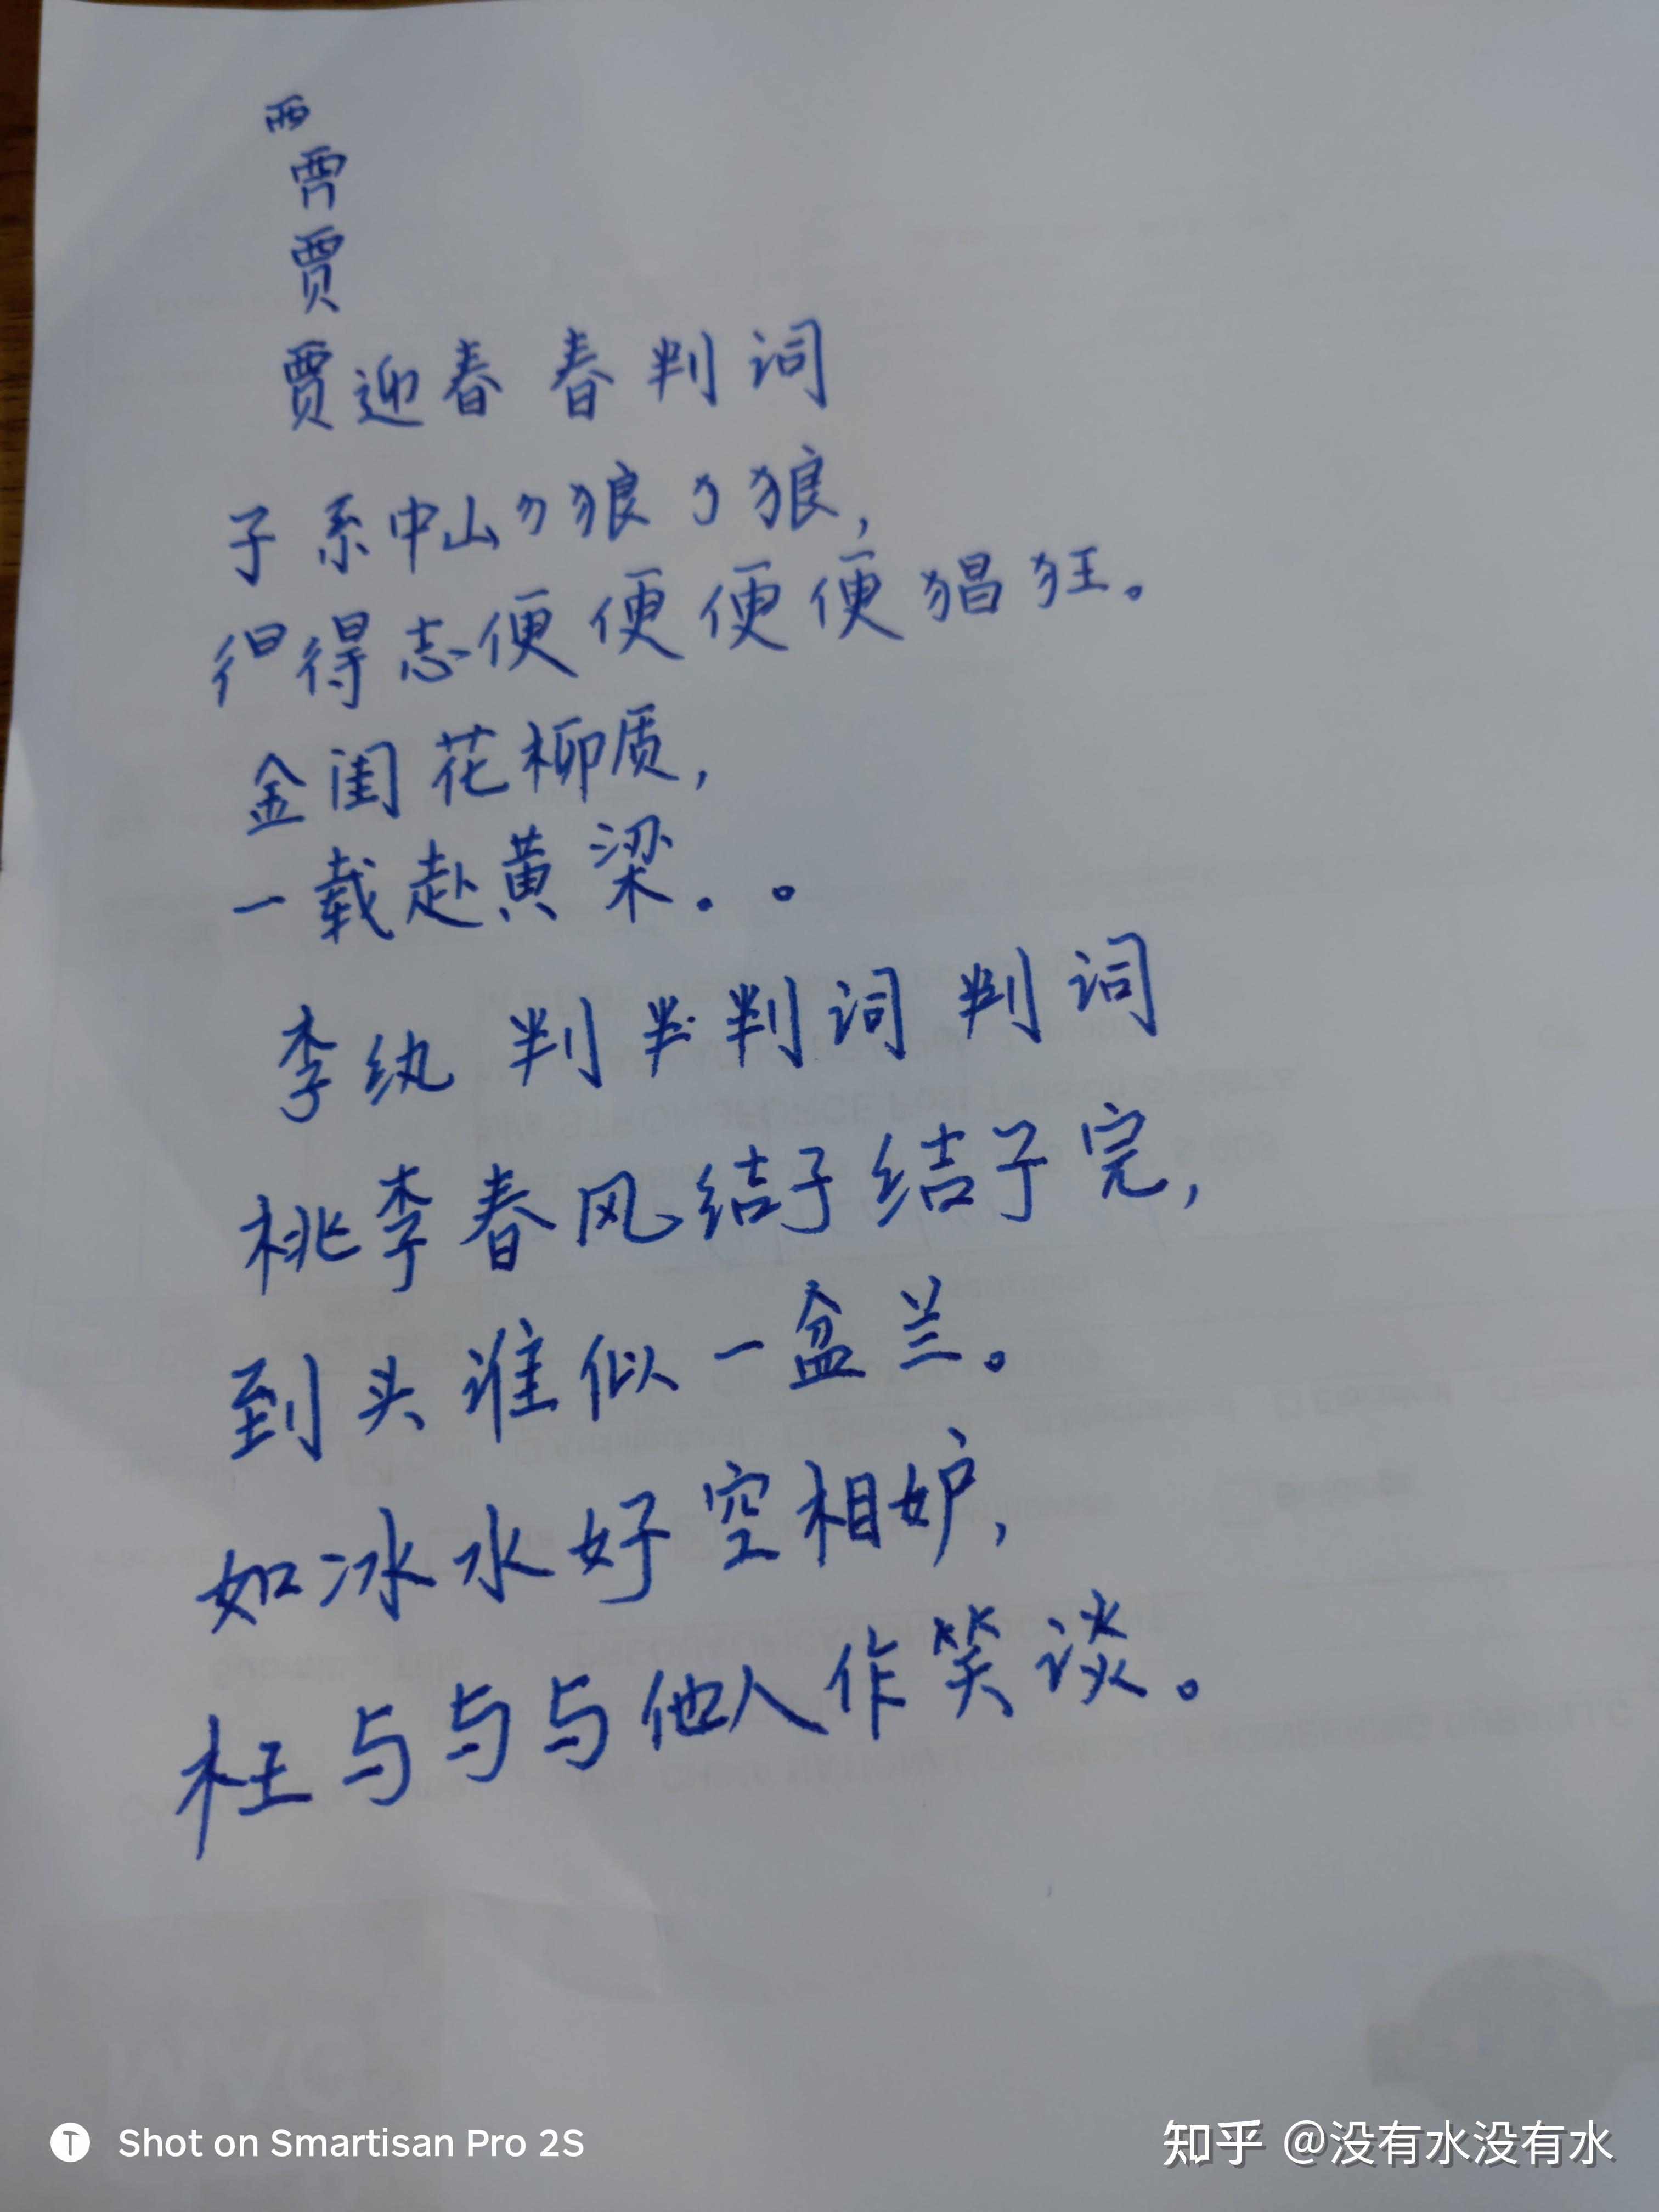 西
贾
贾迎春春判词
子系中山狼狼，
得志便便便便猖狂。
金闺花柳质，
一载赴黄梁。。
李纨判判词判词
桃李春风结子结子完，
到头谁似一盆兰。
如冰水好空相妒，
枉与与与他人作笑谈。
Shot on Smartisan Pro 2S
知乎 @没有水没有水